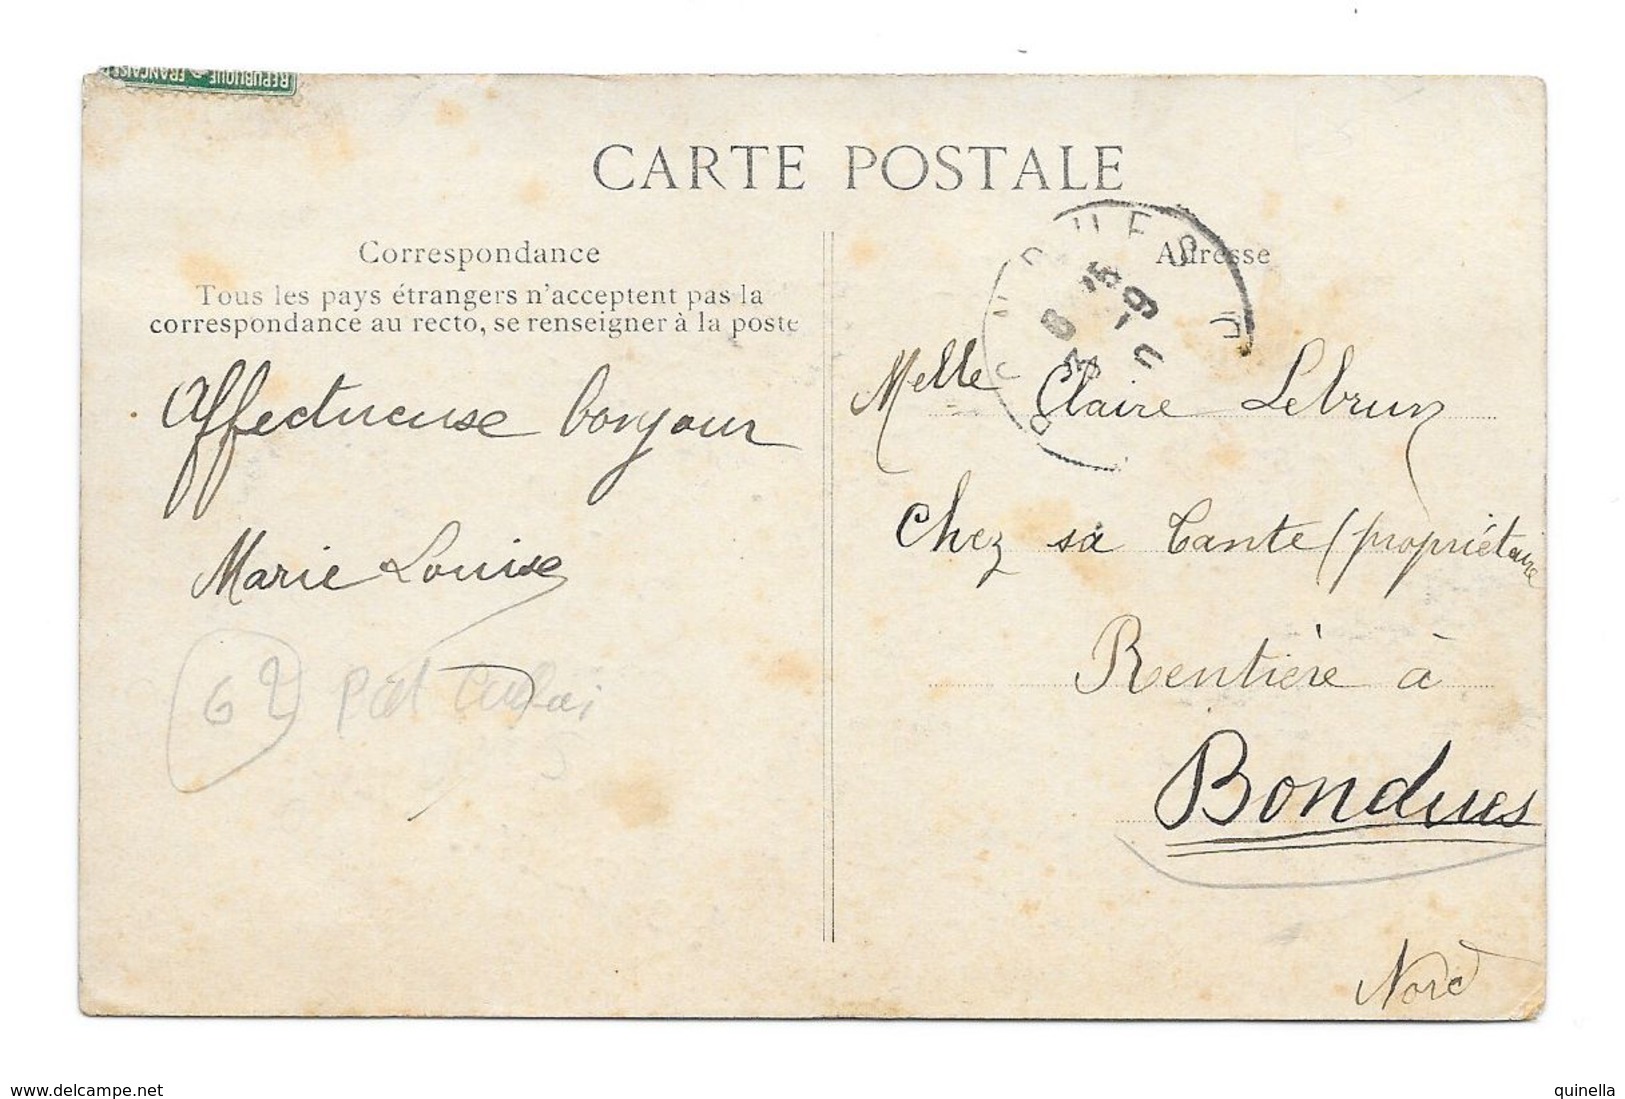 REPUBLIQUE FRANÇAISE
CARTE POSTALE
Correspondance
Tous les pays étrangers n'acceptent pas la
correspondance au recto, se renseigner à la poste
Affectueuse bonjour
Marie Louise
62
Adresse
Melle Claire Lebrun
Chez sa Tante (propriétaire
Rentière à
Bondues
Nord
https://www.delcampe.net
quinella